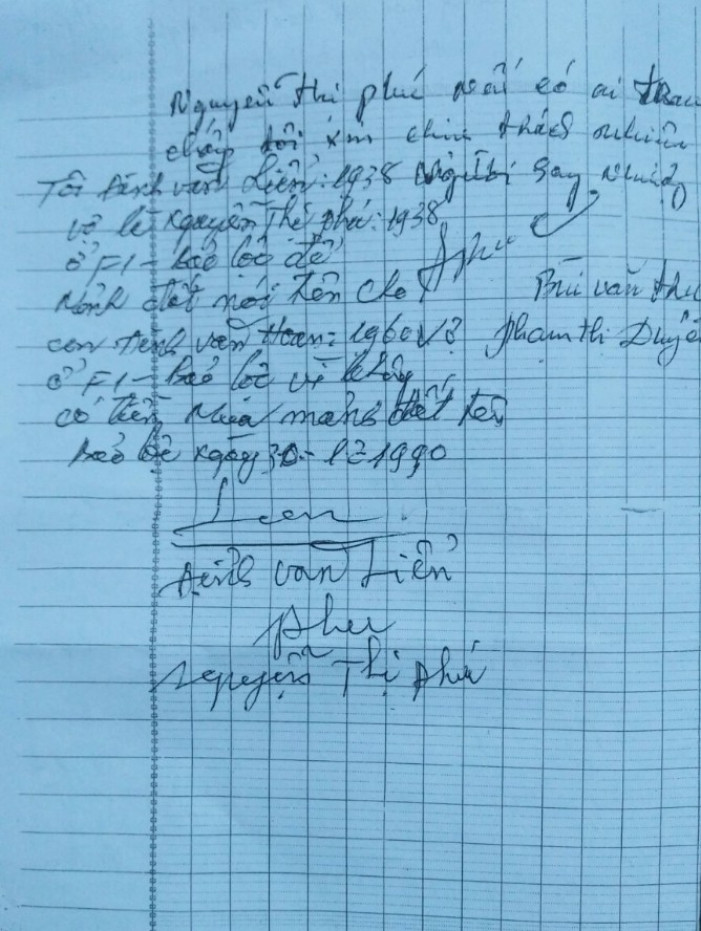 Nguyễn thi phú nếu có ai tran
chấp tôi xin chiu trách nhiêm
Tôi Đinh văn Liển: 1938 Người Say Nhượn
vộ là Nguyễn Thị phú: 1938
ở F1 - bảo lộc để
Mảnh đất nói trên cho phu
Bùi văn thu
con Đinh văn Hoan: 1960 vợ pham thi Duyê
ở F1 - bảo lôc vì không
có tiền Mua mảnh đất trên
bảo lộc Ngày 30 - 12 1990
Lien
Đinh van Liển
phu
Nguyễn Thị phú